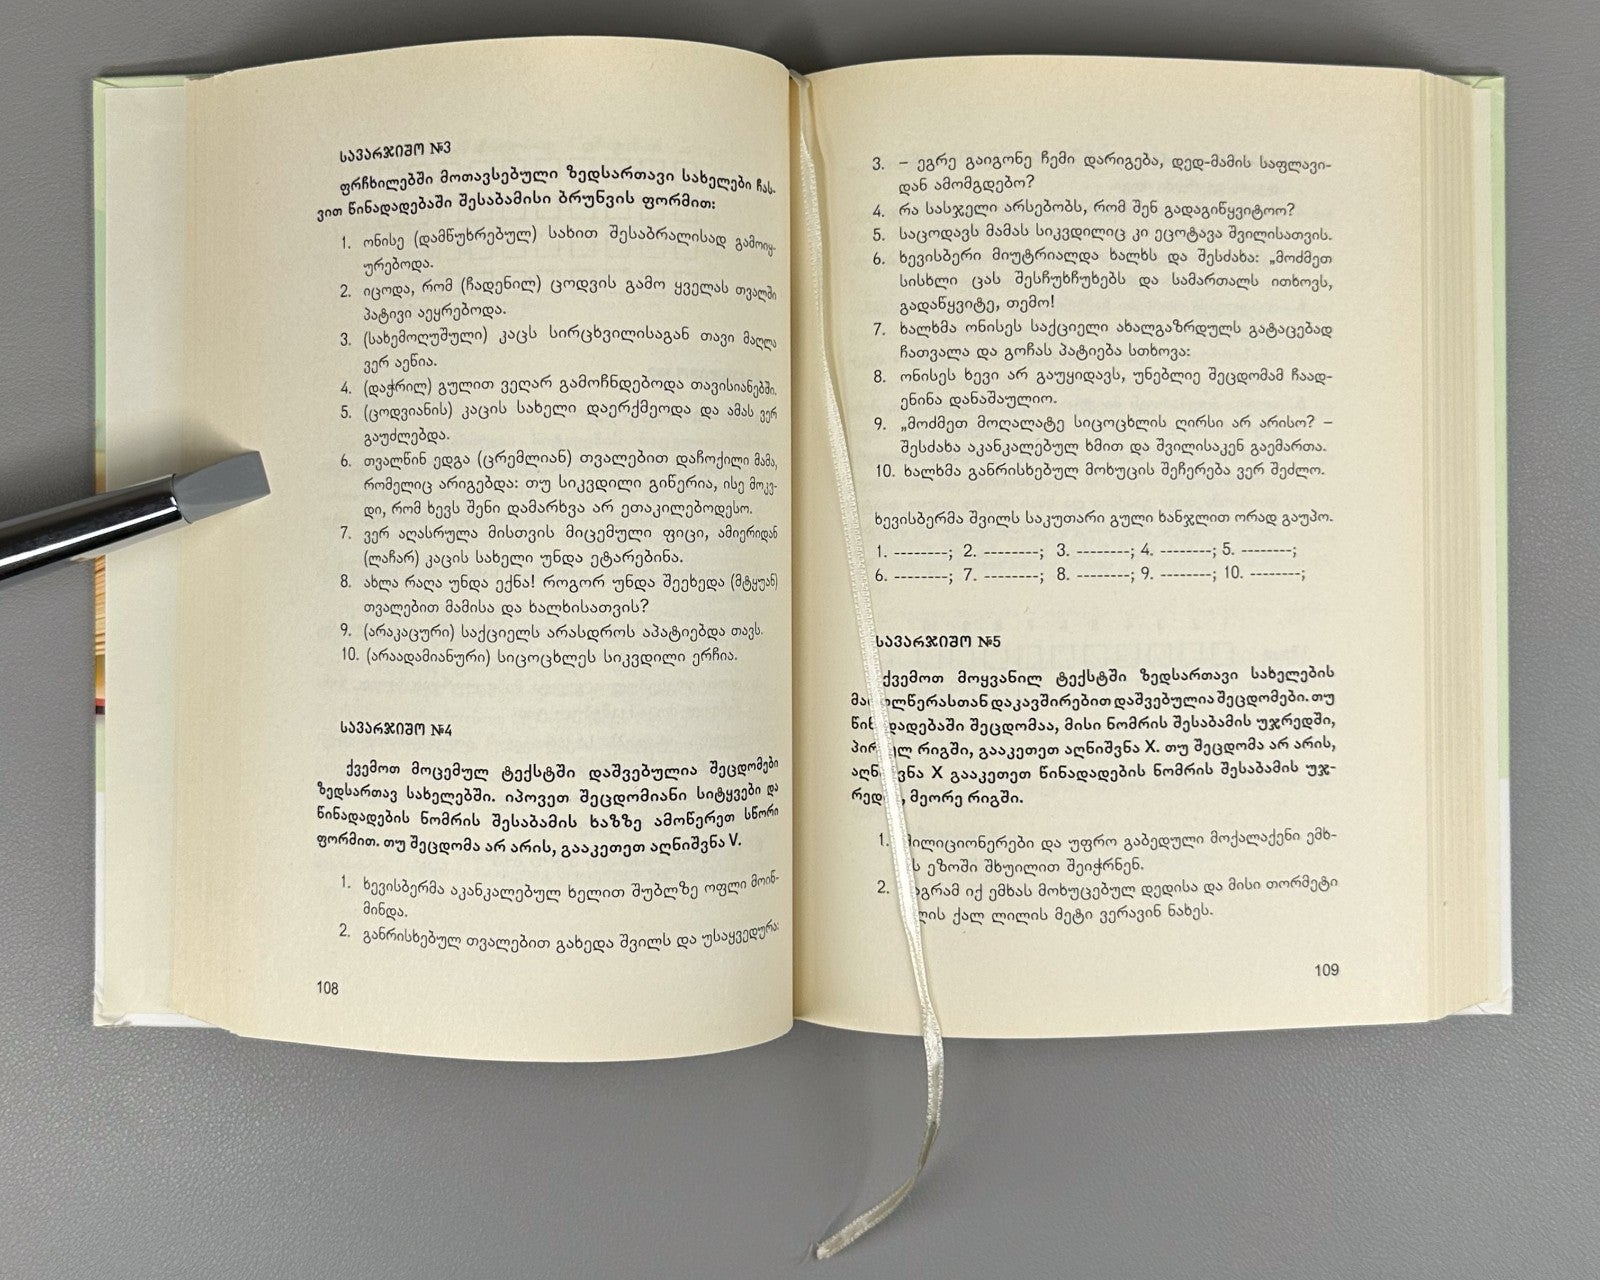 სავარჯიშო №3
ფრჩხილებში მოთავსებული ზედსართავი სახელები ჩას-
ვით წინადადებაში შესაბამისი ბრუნვის ფორმით:
1. ონისე (დამწუხრებულ) სახით შესაბრალისად გამოიყ-
ურებოდა.
2. იცოდა, რომ (ჩადენილ) ცოდვის გამო ყველას თვალში
პატივი აეყრებოდა.
3. (სახემოღუშული) კაცს სირცხვილისაგან თავი მაღლა
ვერ აეწია.
4. (დაჭრილ) გულით ვეღარ გამოჩნდებოდა თავისიანებში.
5. (ცოდვიანის) კაცის სახელი დაერქმეოდა და ამას ვერ
გაუძლებდა.
6. თვალწინ ედგა (ცრემლიან) თვალებით დაჩოქილი მამა,
რომელიც არიგებდა: თუ სიკვდილი გიწერია, ისე მოკვ-
დი, რომ ხევს შენი დამარხვა არ ეთაკილებოდესო.
7. ვერ აღასრულა მისთვის მიცემული ფიცი, ამიერიდან
(ლაჩარ) კაცის სახელი უნდა ეტარებინა.
8. ახლა რაღა უნდა ექნა! როგორ უნდა შეეხედა (მტყუან)
თვალებით მამისა და ხალხისათვის?
9. (არაკაცური) საქციელს არასდროს აპატიებდა თავს.
10. (არაადამიანური) სიცოცხლეს სიკვდილი ერჩია.
სავარჯიშო №4
ქვემოთ მოცემულ ტექსტში დაშვებულია შეცდომები
ზედსართავ სახელებში. იპოვეთ შეცდომიანი სიტყვები და
წინადადების ნომრის შესაბამის ხაზზე ამოწერეთ სწორი
ფორმით. თუ შეცდომა არ არის, გააკეთეთ აღნიშვნა V.
1. ხევისბერმა აკანკალებულ ხელით შუბლზე ოფლი მოიწ-
მინდა.
2. განრისხებულ თვალებით გახედა შვილს და უსაყვედურა:
108
3. – ეგრე გაიგონე ჩემი დარიგება, დედ-მამის საფლავი-
დან ამომგდებო?
4. რა სასჯელი არსებობს, რომ შენ გადაგიწყვიტოო?
5. საცოდავს მამას სიკვდილიც კი ეცოტავა შვილისათვის.
6. ხევისბერი მიუტრიალდა ხალხს და შესძახა: „მოძმეთ
სისხლი ცას შესჩუხჩუხებს და სამართალს ითხოვს,
გადაწყვიტე, თემო!
7. ხალხმა ონისეს საქციელი ახალგაზრდულს გატაცებად
ჩათვალა და გოჩას პატიება სთხოვა:
8. ონისეს ხევი არ გაუყიდავს, უნებლიე შეცდომამ ჩაად-
ენინა დანაშაულიო.
9. „მოძმეთ მოღალატე სიცოცხლის ღირსი არ არისო? –
შესძახა აკანკალებულ ხმით და შვილისაკენ გაემართა.
10. ხალხმა განრისხებულ მოხუცის შეჩერება ვერ შეძლო.
ხევისბერმა შვილს საკუთარი გული ხანჯლით ორად გაუპო.
1. --------; 2. --------; 3. --------; 4. --------; 5. --------;
6. --------; 7. --------; 8. --------; 9. --------; 10. --------;
სავარჯიშო №5
ქვემოთ მოყვანილ ტექსტში ზედსართავი სახელების
დაკავშირებით დაშვებულია შეცდომები. თუ
შეცდომაა, მისი ნომრის შესაბამის უჯრედში,
რიგში, გააკეთეთ აღნიშვნა X. თუ შეცდომა არ არის,
X გააკეთეთ წინადადების ნომრის შესაბამის უჯ-
მეორე რიგში.
1. და უფრო გაბედული მოქალაქენი ემხ-
ეზოში შხუილით შეიჭრნენ.
2. იქ ემხას მოხუცებულ დედისა და მისი თორმეტი
ქალ ლილის მეტი ვერავინ ნახეს.
109